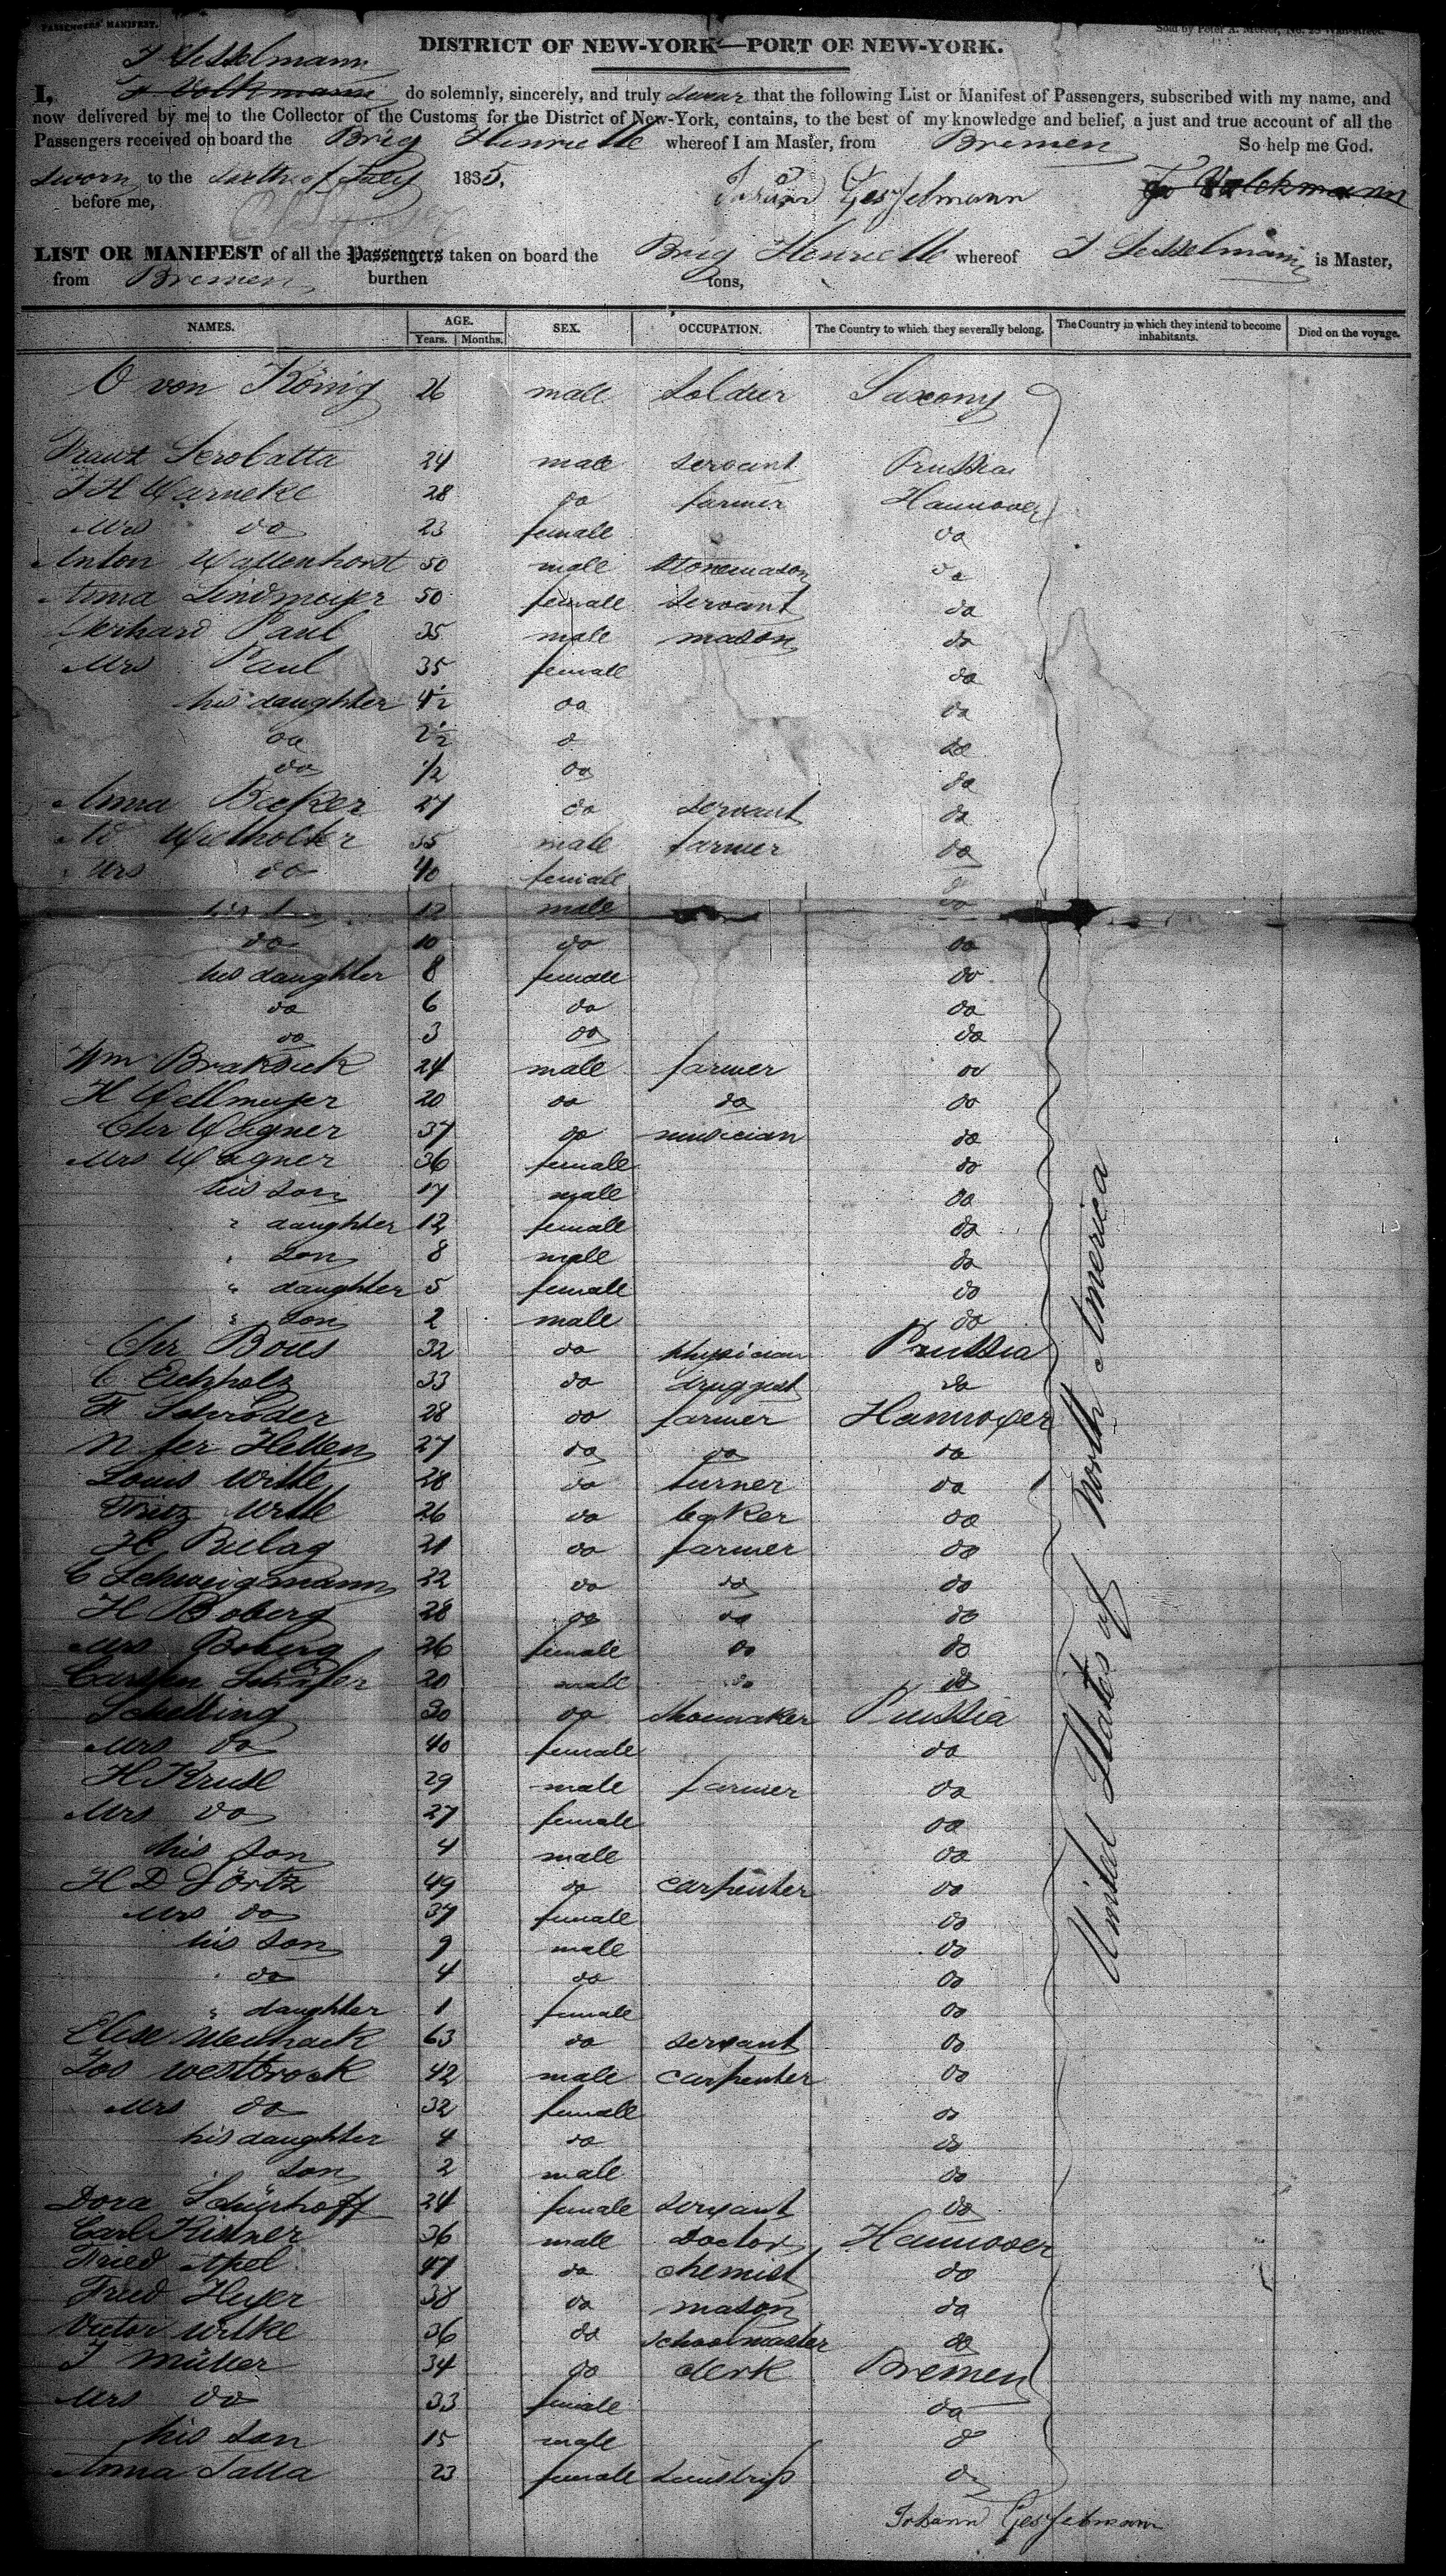 PASSENGERS' MANIFEST.
Sold by Peter A. Mesier, No. 28 Wall-street.
DISTRICT OF NEW-YORK—PORT OF NEW-YORK.
J Gesselmann
I, J Volkmann do solemnly, sincerely, and truly swear that the following List or Manifest of Passengers, subscribed with my name, and
now delivered by me to the Collector of the Customs for the District of New-York, contains, to the best of my knowledge and belief, a just and true account of all the
Passengers received on board the Brig Henriette whereof I am Master, from Bremen So help me God.
Sworn to the of July 1835,
before me, Johann Gesselmann Volckmann
LIST OR MANIFEST of all the Passengers taken on board the Brig Henriette whereof J Gesselmann is Master,
from Bremen burthen tons,
NAMES. AGE. SEX. OCCUPATION. The Country to which they severally belong. The Country in which they intend to become inhabitants. Died on the voyage.
Years. Months.
O von König 26 male Soldier Saxony
Franz 24 male servant Prussia
J H Warneke 28 do farmer Hannover
Mrs do 23 female do
Anton Wallenhorst 50 male stonemason do
Anna Lindmeyer 50 female servant do
Gerhard Paul 35 male mason do
Mrs Paul 35 female do
his daughter 4½ do do
do 2½ d do
do ½ do do
Anna Becker 27 do servant do
Wielholter 35 male farmer do
Mrs do 40 female do
his 12 male do
do 10 do do
his daughter 8 female do
do 6 do do
do 3 do do
Wm Braksiek 24 male farmer do
H Wellmeyer 20 do do do
Chr Wagner 37 do musician do
Mrs Wagner 36 female do
his son 17 male do
" daughter 12 female do
" son 8 male do
" daughter 5 female do
" son 2 male do
Chr Boies 32 do physician Prussia
C Eichholz 33 do druggist do
F Schröder 28 do farmer Hannover
N ter Hellen 27 do do do
Louis Witte 28 do turner do
Fritz Witte 26 do baker do
H Bulag 21 do farmer do
C Schweigmann 22 do do do
H Boberg 28 do do do
Mrs Boberg 26 female do do
Carsten Schäfer 20 male do do
Schelling 30 do shoemaker Prussia
Mrs do 40 female do
H Kruse 29 male farmer do
Mrs do 27 female do
his son 4 male do
H D Förtz 49 do carpenter do
Mrs do 37 female do
his son 9 male do
" do 4 do do
" daughter 1 female do
Elise 63 do servant do
Jos Westbrock 42 male carpenter do
Mrs do 32 female do
his daughter 4 do do
son 2 male do
Dora Schürhoff 24 female servant do
Carl Kistner 36 male Doctor Hannover
Fried Apel 47 do chemist do
Fried Heyer 38 do mason do
Victor Wilke 36 do schoolmaster do
J Müller 34 do clerk Bremen
Mrs do 33 female do
his son 15 male d
Anna Salla 23 female do
United States of North America
Johann Gesselmann